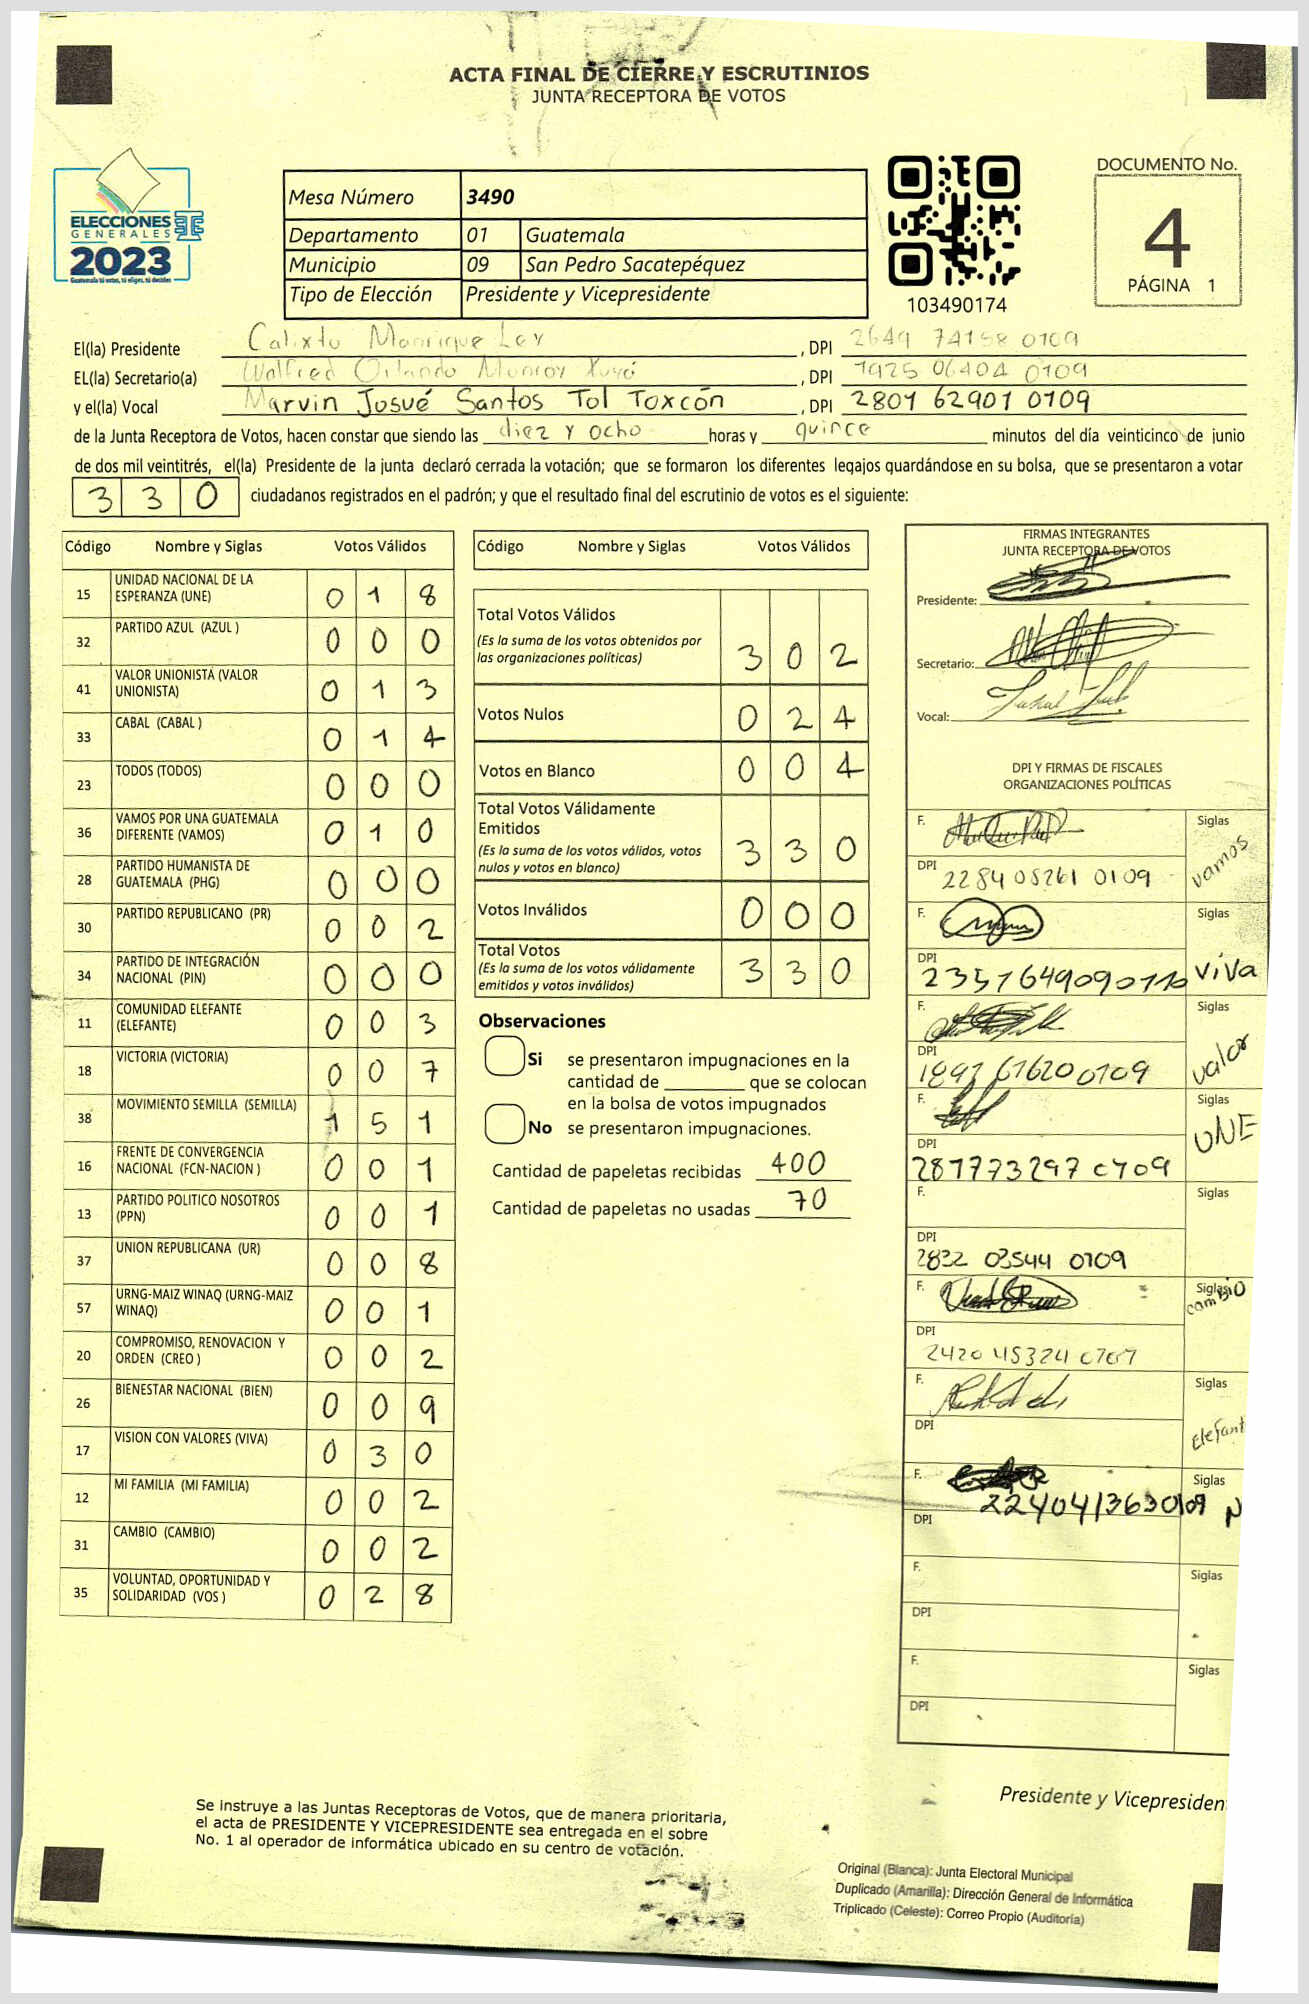 ACTA FINAL DE CIERRE Y ESCRUTINIOS
JUNTA RECEPTORA DE VOTOS
ELECCIONES
GENERALES
2023
Guatemala tú votas, tú eliges, tú decides
Mesa Número 3490
Departamento 01 Guatemala
Municipio 09 San Pedro Sacatepéquez
Tipo de Elección Presidente y Vicepresidente
103490174
DOCUMENTO No.
4
PÁGINA 1
El(la) Presidente Calixto Manrique Ler, DPI 2649 74158 0109
EL(la) Secretario(a) Walfred Orlando Monroy Xuyá, DPI 1925 06404 0109
y el(la) Vocal Marvin Josué Santos Tol Toxcón, DPI 2801 62901 0109
de la Junta Receptora de Votos, hacen constar que siendo las diez y ocho horas y quince minutos del día veinticinco de junio
de dos mil veintitrés, el(la) Presidente de la junta declaró cerrada la votación; que se formaron los diferentes legajos guardándose en su bolsa, que se presentaron a votar
330 ciudadanos registrados en el padrón; y que el resultado final del escrutinio de votos es el siguiente:
Código Nombre y Siglas Votos Válidos
15 UNIDAD NACIONAL DE LA ESPERANZA (UNE) 0 1 8
32 PARTIDO AZUL (AZUL ) 0 0 0
41 VALOR UNIONISTA (VALOR UNIONISTA) 0 1 3
33 CABAL (CABAL ) 0 1 4
23 TODOS (TODOS) 0 0 0
36 VAMOS POR UNA GUATEMALA DIFERENTE (VAMOS) 0 1 0
28 PARTIDO HUMANISTA DE GUATEMALA (PHG) 0 0 0
30 PARTIDO REPUBLICANO (PR) 0 0 2
34 PARTIDO DE INTEGRACIÓN NACIONAL (PIN) 0 0 0
11 COMUNIDAD ELEFANTE (ELEFANTE) 0 0 3
18 VICTORIA (VICTORIA) 0 0 7
38 MOVIMIENTO SEMILLA (SEMILLA) 1 5 1
16 FRENTE DE CONVERGENCIA NACIONAL (FCN-NACION ) 0 0 1
13 PARTIDO POLITICO NOSOTROS (PPN) 0 0 1
37 UNION REPUBLICANA (UR) 0 0 8
57 URNG-MAIZ WINAQ (URNG-MAIZ WINAQ) 0 0 1
20 COMPROMISO, RENOVACION Y ORDEN (CREO ) 0 0 2
26 BIENESTAR NACIONAL (BIEN) 0 0 9
17 VISION CON VALORES (VIVA) 0 3 0
12 MI FAMILIA (MI FAMILIA) 0 0 2
31 CAMBIO (CAMBIO) 0 0 2
35 VOLUNTAD, OPORTUNIDAD Y SOLIDARIDAD (VOS ) 0 2 8
Código Nombre y Siglas Votos Válidos
Total Votos Válidos
(Es la suma de los votos obtenidos por
las organizaciones políticas) 3 0 2
Votos Nulos 0 2 4
Votos en Blanco 0 0 4
Total Votos Válidamente
Emitidos
(Es la suma de los votos válidos, votos
nulos y votos en blanco) 3 3 0
Votos Inválidos 0 0 0
Total Votos
(Es la suma de los votos válidamente
emitidos y votos inválidos) 3 3 0
Observaciones
Si se presentaron impugnaciones en la
cantidad de ________ que se colocan
en la bolsa de votos impugnados
No se presentaron impugnaciones.
Cantidad de papeletas recibidas 400
Cantidad de papeletas no usadas 70
FIRMAS INTEGRANTES
JUNTA RECEPTORA DE VOTOS
Presidente:
Secretario:
Vocal:
DPI Y FIRMAS DE FISCALES
ORGANIZACIONES POLÍTICAS
F. Siglas
DPI 2284 05261 0109 vamos
F. Siglas
DPI 2351649090110 viva
F. Siglas
DPI valor
F. Siglas
DPI UNE
F. Siglas
DPI 2832 03544 0109
F. Siglas cambio
DPI
F. Siglas
DPI Elefant
F. Siglas
2240413630109 N
DPI
F. Siglas
DPI
F. Siglas
DPI
Presidente y Vicepresiden
Se instruye a las Juntas Receptoras de Votos, que de manera prioritaria,
el acta de PRESIDENTE Y VICEPRESIDENTE sea entregada en el sobre
No. 1 al operador de informática ubicado en su centro de votación.
Original (Blanca): Junta Electoral Municipal
Duplicado (Amarilla): Dirección General de Informática
Triplicado (Celeste): Correo Propio (Auditoría)